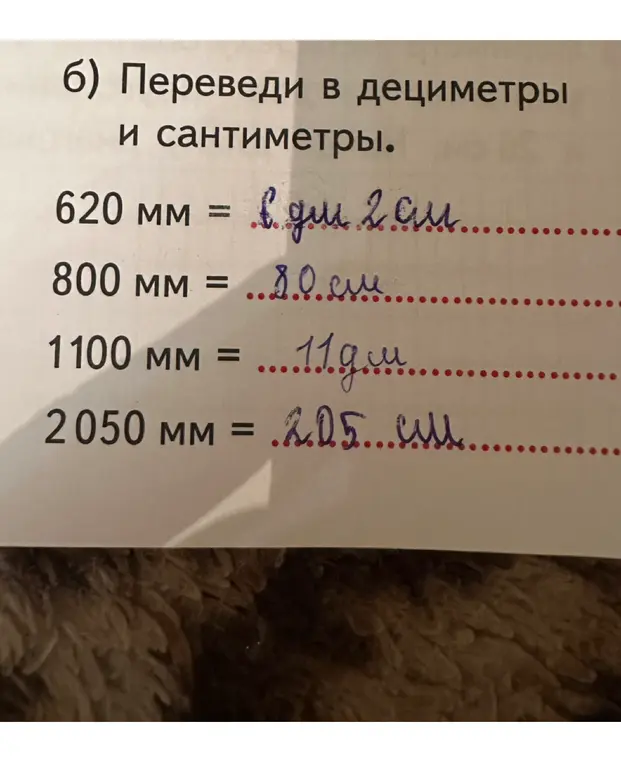 б) Переведи в дециметры
и сантиметры.
620 мм = 6 дм 2 см
800 мм = 80 см
1100 мм = 11 дм
2050 мм = 205 см